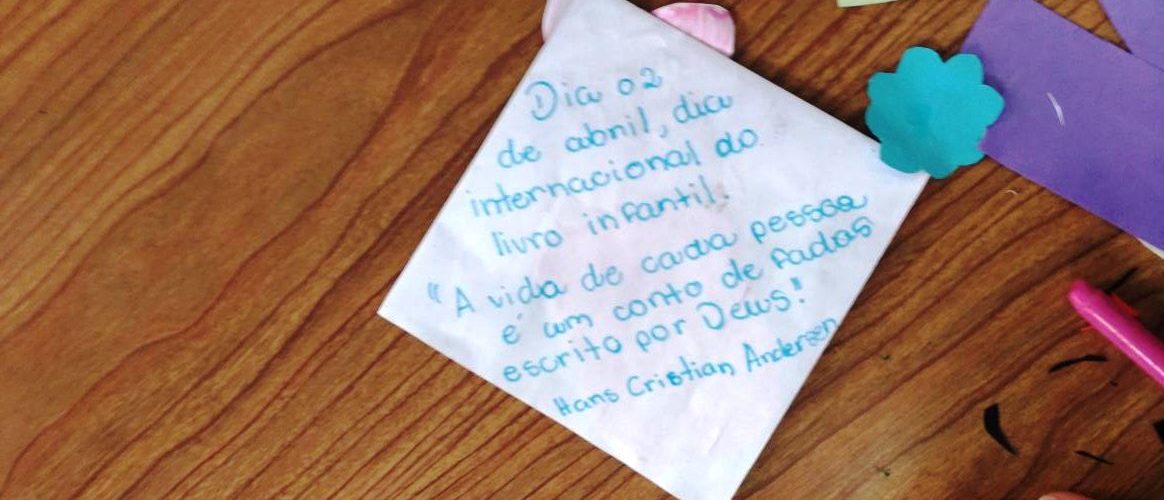 Dia 02
de abril, dia
internacional do
livro infantil.
"A vida de cada pessoa
é um conto de fadas
escrito por Deus!
Hans Cristian Andersen